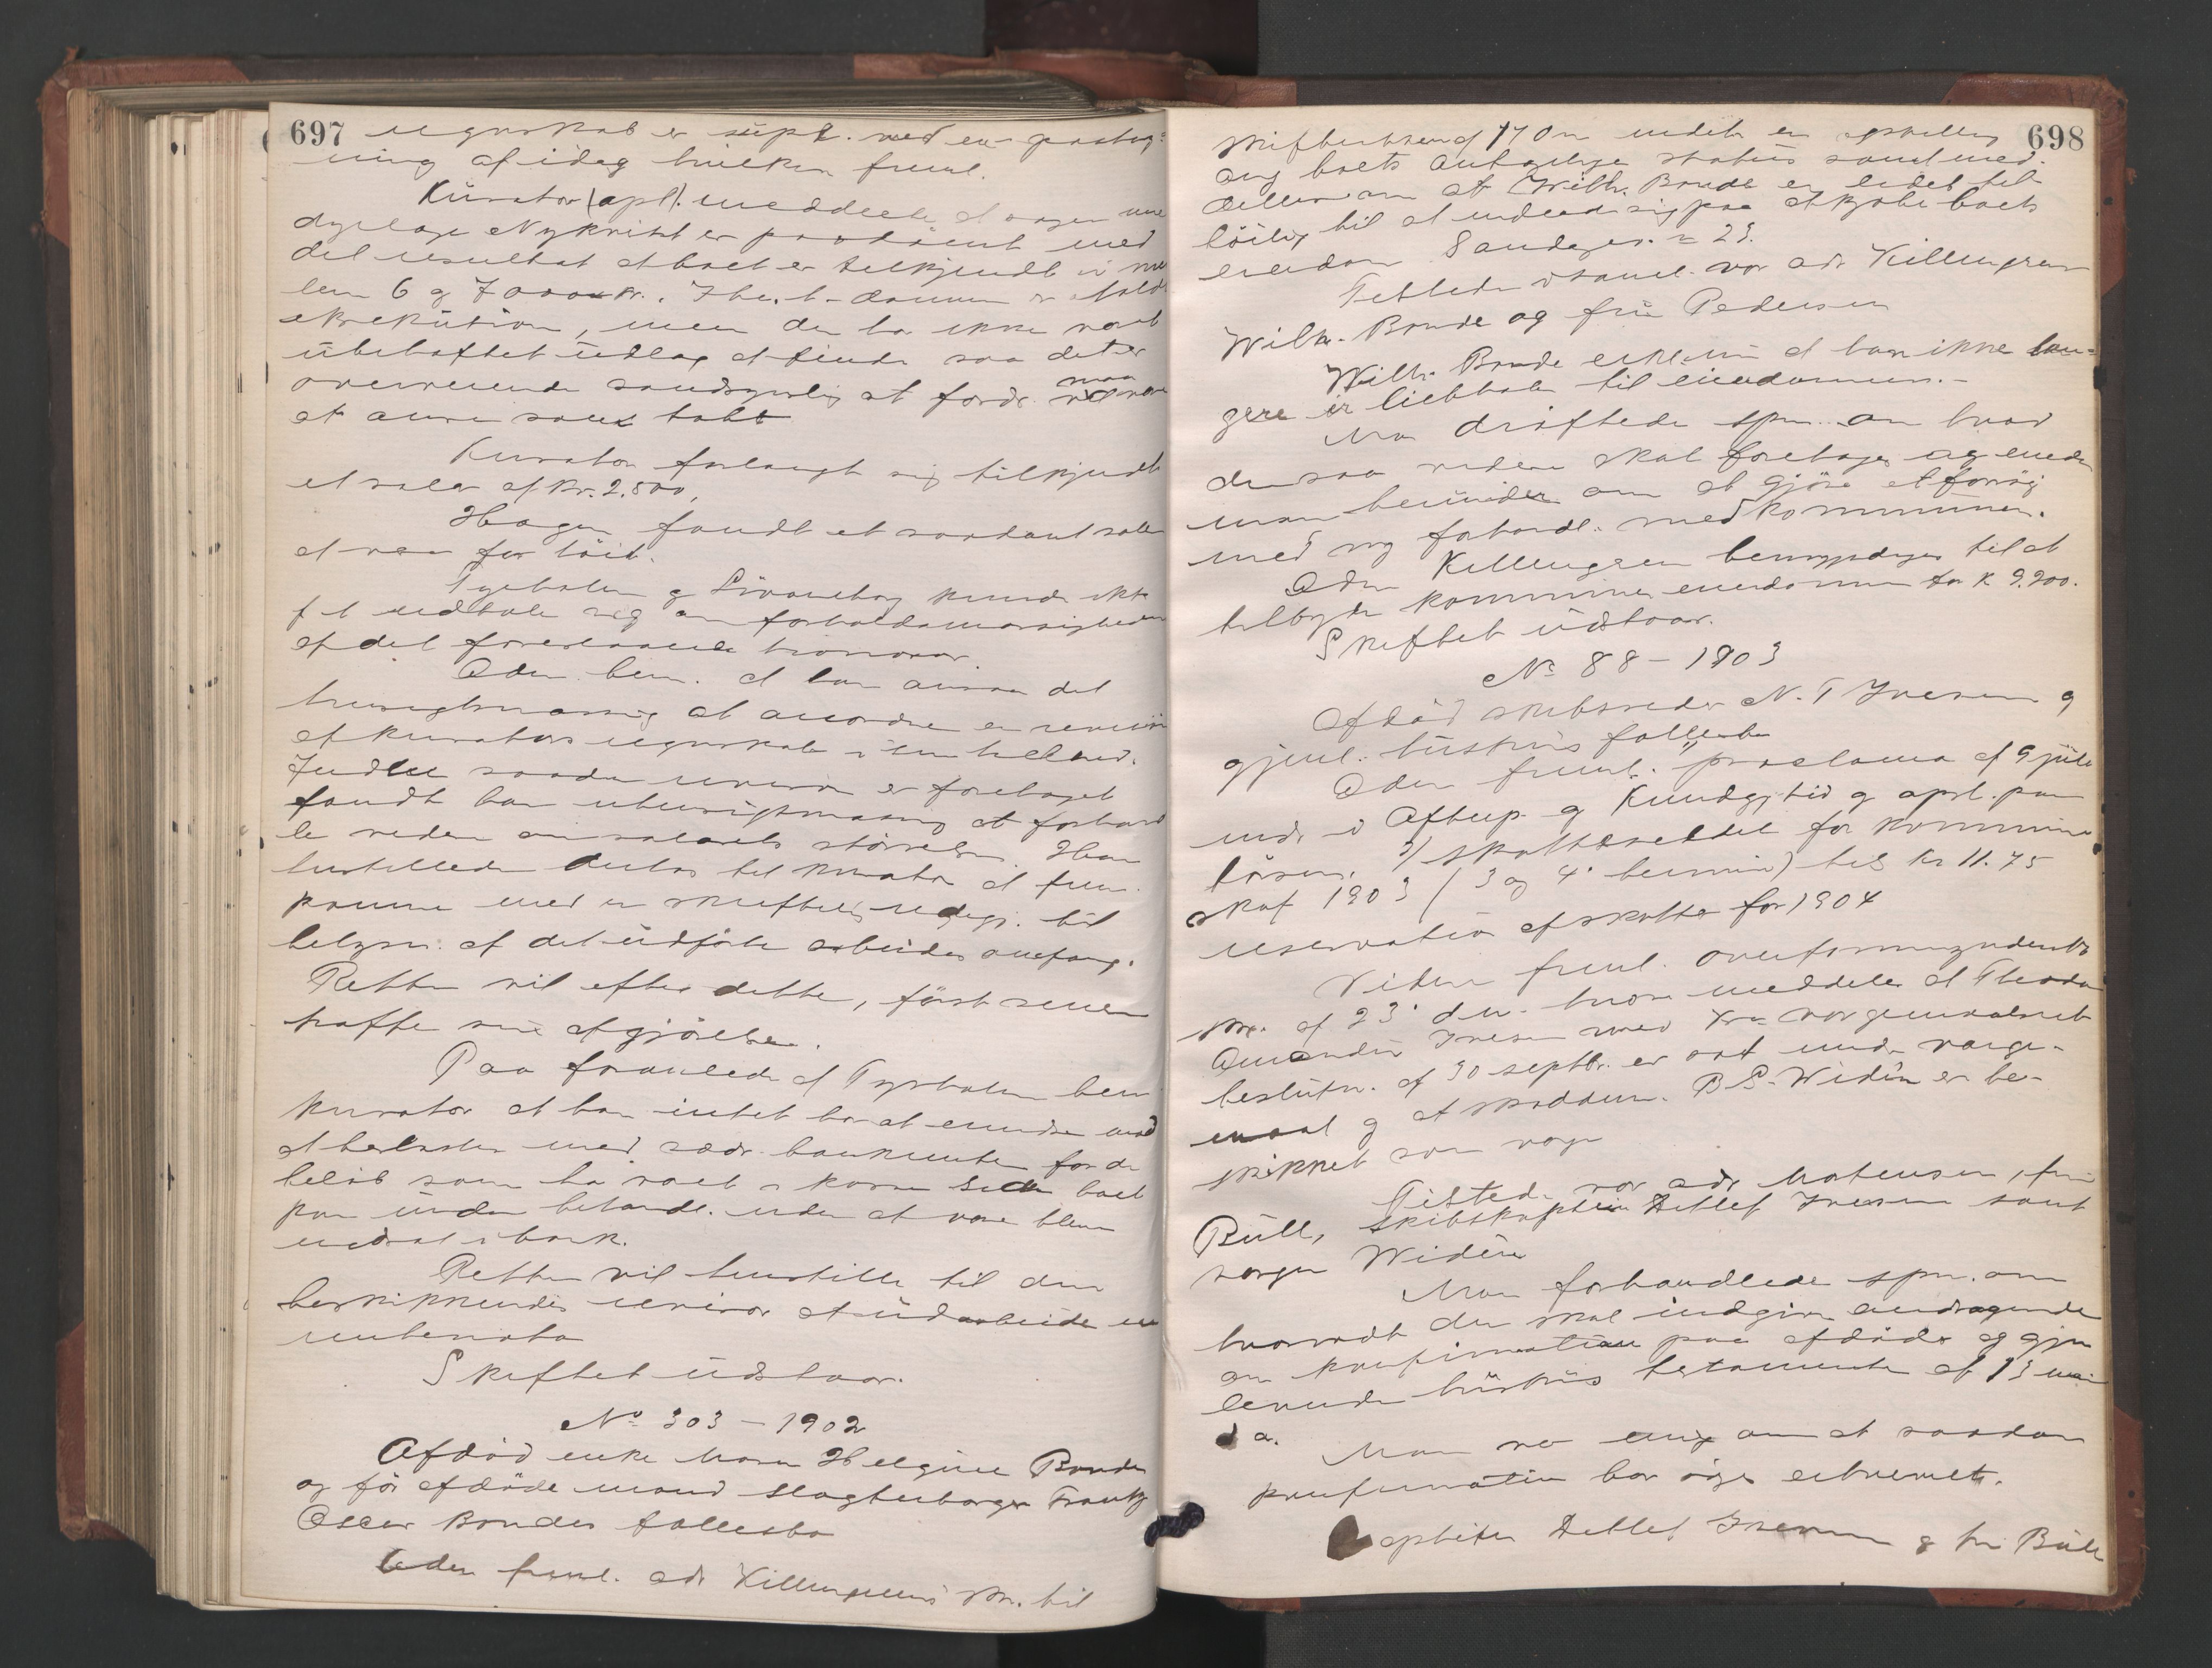 697 regnskab er supl. med en paateg-
ning af idag hvilken freml.
Kurator (opl). meddeelte at sagen
dyrlæge Nykvist er paadömt med
det resultat at boet er tilkjendt
lem 6 g 7000 kr. I h. t. dommen er afholdt
exekution, men der har ikke været
übeheftet üdlæg at finde saa det er
overveiende sandsynlig at fordr. maa
at anse som tabt
Kurator forlangte sig tilkjendt
et salær af Kr. 2.500,
Hagen fandt et saadant salær
at være for höit.
g kunde ikke
udtale sig om forholdsmæssigheden
af det foreslaaede honorar.
Adm. bem. at han ansaa det
hensigtsmæssig at anordne en revision
af kurators regnskab i sin helhed.
Indtil saadan revision er foretaget
fandt han uhensigtsmæssig at forhand
le videre om salærets störrelse. Han
henstillede derhos til kurator at frem
komme med en skriftlig redegj. til
belysn. af det üdförte arbeides omfang.
Retten vil efter dette, först senere
træffe sin afgjörelse.
Paa foranledn. af bem
kurator at han intet har at erindre mod
at belastes med sædv. bankrenter for de
belöb som har været i kassen siden boet
kom ünder behandl. uden at være bleven
indsat i bank.
Retten vil henstille til den
beskikkendes revisor at üdarbeide en
Skiftet üdstaar.
No 303 – 1902
Afdöd enke Maren Helgine Bonde
og för afdöde mand slagterborger Frantz
Oscar Bondes fællesbo
Adm freml. adv Killengreens skr. til
698
skifteretten af 17 Om indeh. en opstilling
ang boets antagelige status samt med-
delelse om at Wilh. Bonde er ledet til
löilig til at indlade sig paa at kjöbe boets
eiendom Sandeger. = 23.
Tilstede i saml. var adv Killengreen
Wilh. Bonde og frü Pedersen
Wilh. Bonde erkl. nü at han ikke læn-
gere er liebhaber til eiendommen. –
Man dröftede spm. om hvad
der saa videre skal foretages og enedes
man om at gjöre et forsög
med ny forhandl. med kommünen.
Adv Killengreen bemyndiges til at
tilbyde kommünen eiendommen for K 9.200.
Skiftet üdstaar.
No 88 – 1903
Afdöd skibsreder N. T Iversen g
gjenl. hüstrüs fællesbo
Adm freml. 1) proclama af 9 jüli
indr. i Aftenp. g Kundgj tid g opsl. paa
börsen. 2) skatteseddel for kommüne
skat 1903 (3 og 4' termin) tils Kr 11. 75
reservation af skatter for 1904
Videre freml. overformynderiets
skr. af 23' dm. hvori meddeles at Theodor
Amandus Iversen med Kra vergemaalsret
beslutn. af 30 septbr. er sat under verge-
maal g at skoddem. B S. Widin er be-
skikket som verge
Tilsted. var adv. Mathiesen, frü
Büll, skibskaptein Detlef Iversen samt
vergen Widin
Man forhandlede spm. om
hvorvidt der skal indgives andragende
om konfirmation paa afdödes og gjen
levende hüstrüs testamente af 13 mai
d a.
Man var enig om at saadan
konfirmation bör söges erhvervet.
Kaptein Detlef Iversen g frü Büll